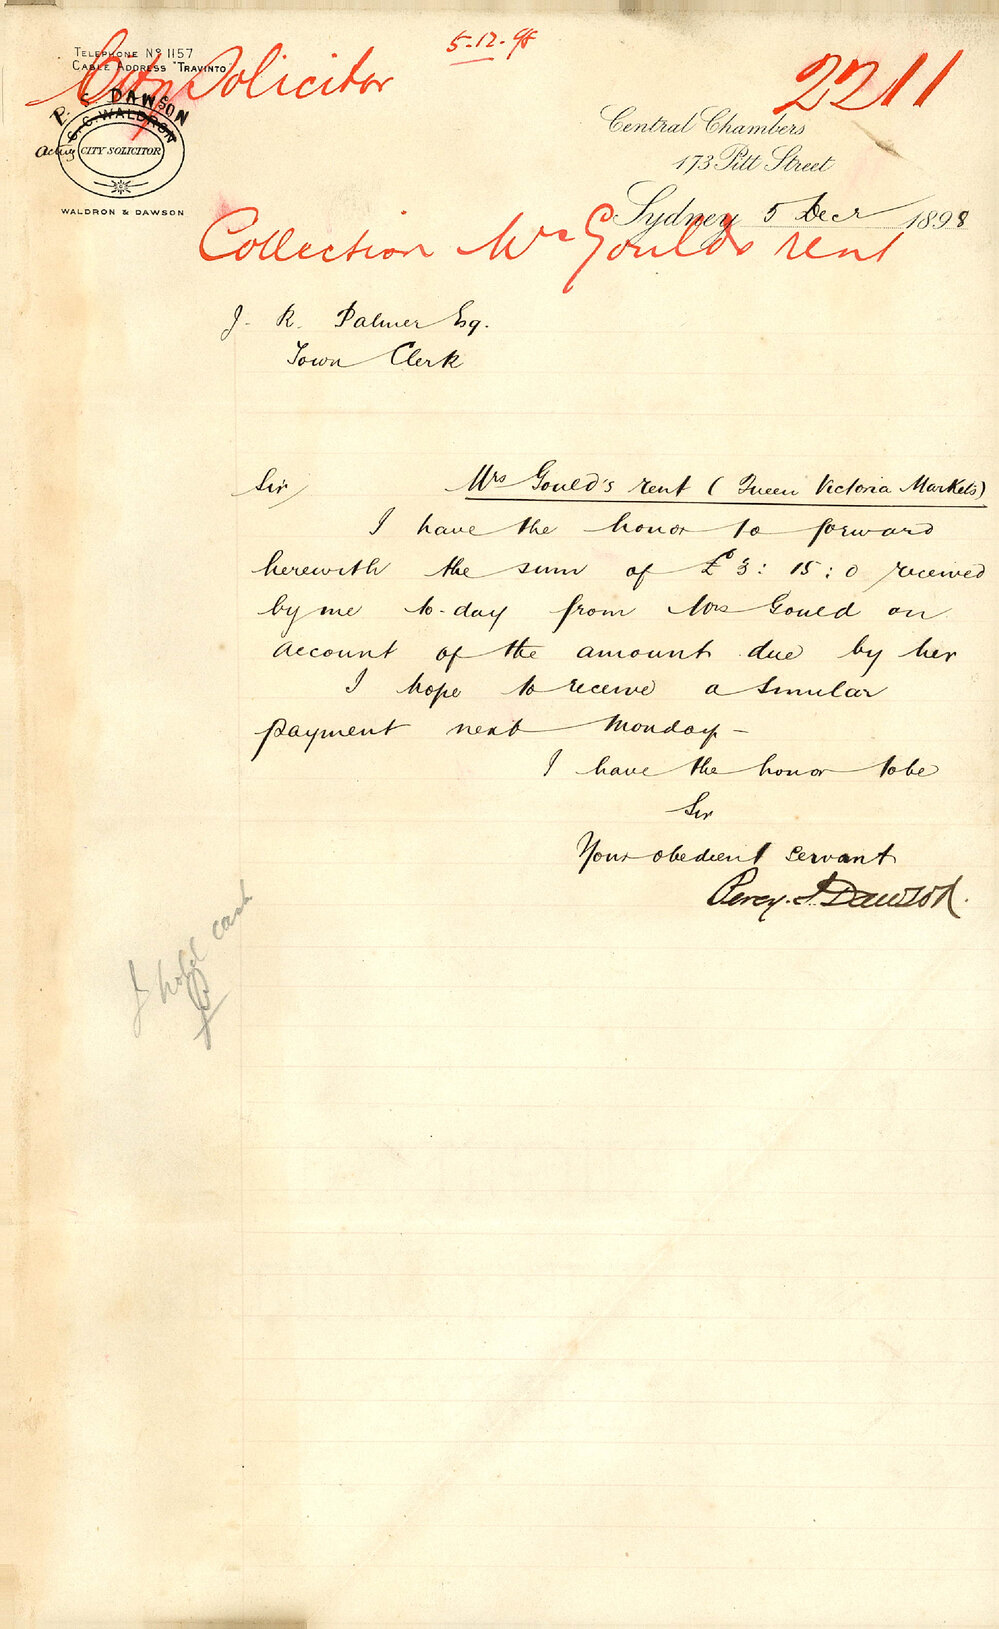 5.12.98
2211
City Solicitor
TELEPHONE Nº 1157
CABLE ADDRESS "TRAVINTO"
P. S. DAWSON
C. C. WALDRON
Acting
CITY SOLICITOR
WALDRON & DAWSON
Central Chambers
173 Pitt Street
Sydney 5 Decr 1898
Collection Mrs Goulds rent
J. R. Palmer Esq.
Town Clerk
Sir
Mrs Gould's rent (Queen Victoria Markets)
I have the honor to forward
herewith the sum of £3:15:0 received
by me to-day from Mrs Gould on
account of the amount due by her
I hope to receive a similar
payment next Monday -
I have the honor to be
Sir
Your obedient servant
Percy. S. Dawson.
I hold cash